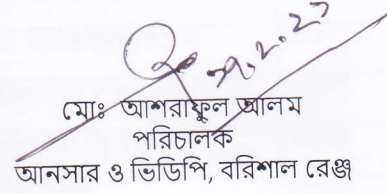 মোঃ আশরাফুল আলম
পরিচালক
আনসার ও ভিডিপি, বরিশাল রেঞ্জ